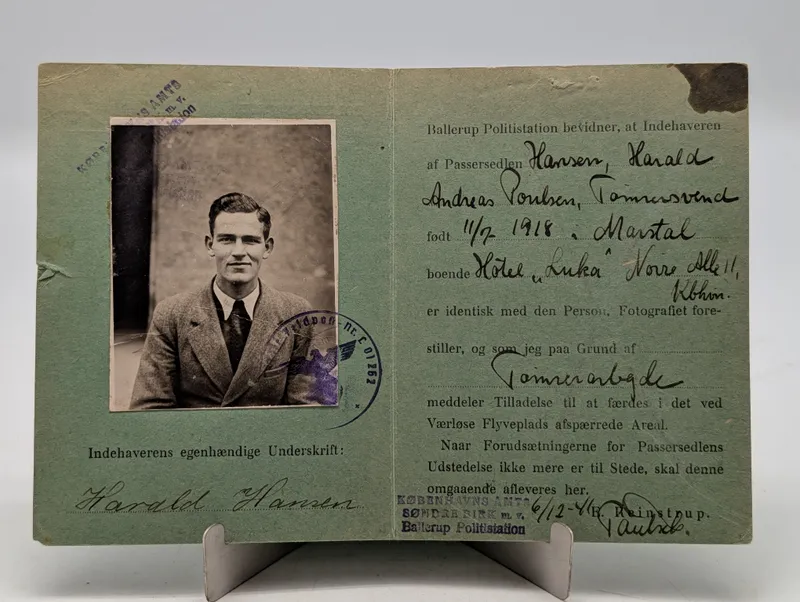 KØBENHAVNS AMTS
m. v.
Feldpost-Nr. L 01262
Indehaverens egenhændige Underskrift:
Harald Hansen
Ballerup Politistation bevidner, at Indehaveren
af Passersedlen Hansen, Harald
Andreas Poulsen, Tømrersvend
født 11/7 1918 i Marstal
boende Hôtel „Luka" Nørre Alle 11,
Kbhvn.
er identisk med den Person, Fotografiet fore-
stiller, og som jeg paa Grund af
Tømrerarbejde
meddeler Tilladelse til at færdes i det ved
Værløse Flyveplads afspærrede Areal.
Naar Forudsætningerne for Passersedlens
Udstedelse ikke mere er til Stede, skal denne
omgaaende afleveres her.
KØBENHAVNS AMTS
SØNDRE BIRK m. v.
Ballerup Politistation
6/12-41 Heinstrup.